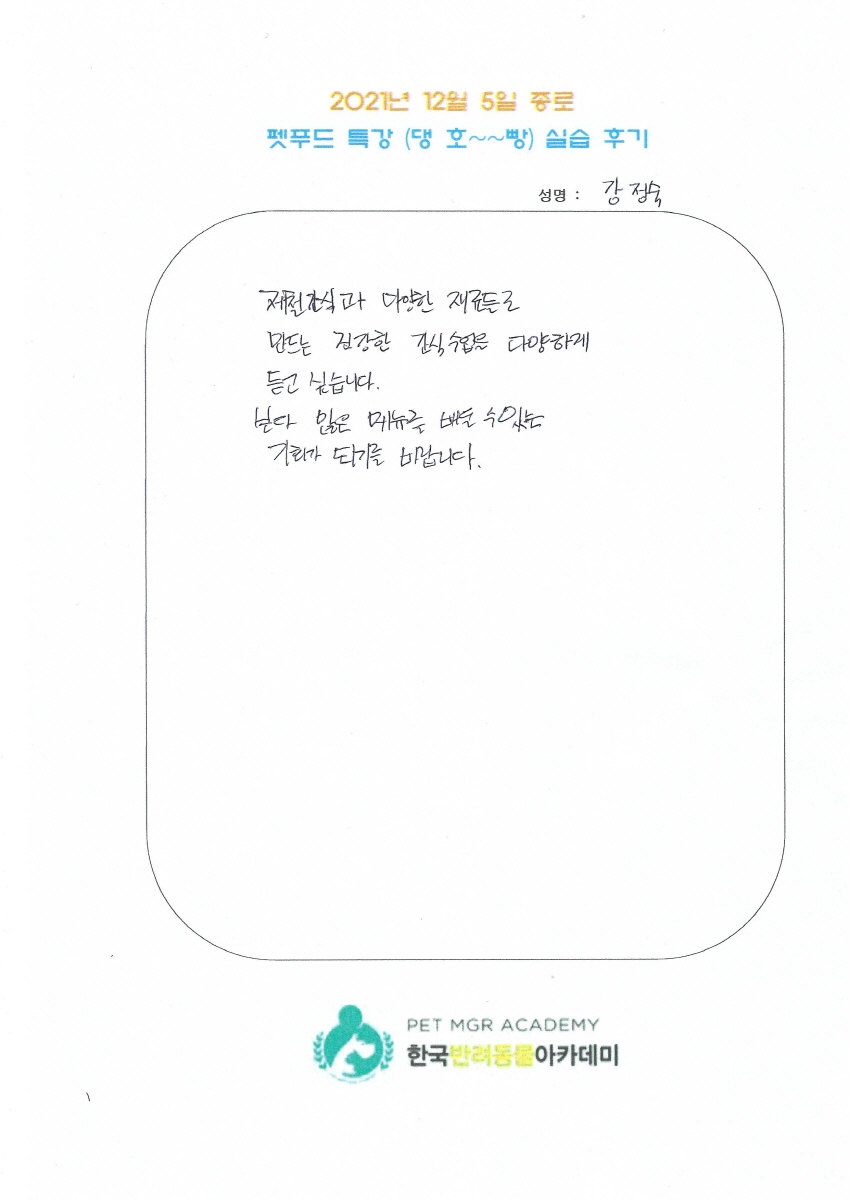 2021년 12월 5일 종로
펫푸드 특강 (댕 호~~빵) 실습 후기
성명 : 강정숙
제철간식과 다양한 재료들로
만드는 건강한 간식수업을 다양하게
듣고 싶습니다.
보다 많은 메뉴를 배울 수있는
기회가 되기를 바랍니다.
PET MGR ACADEMY
한국반려동물아카데미